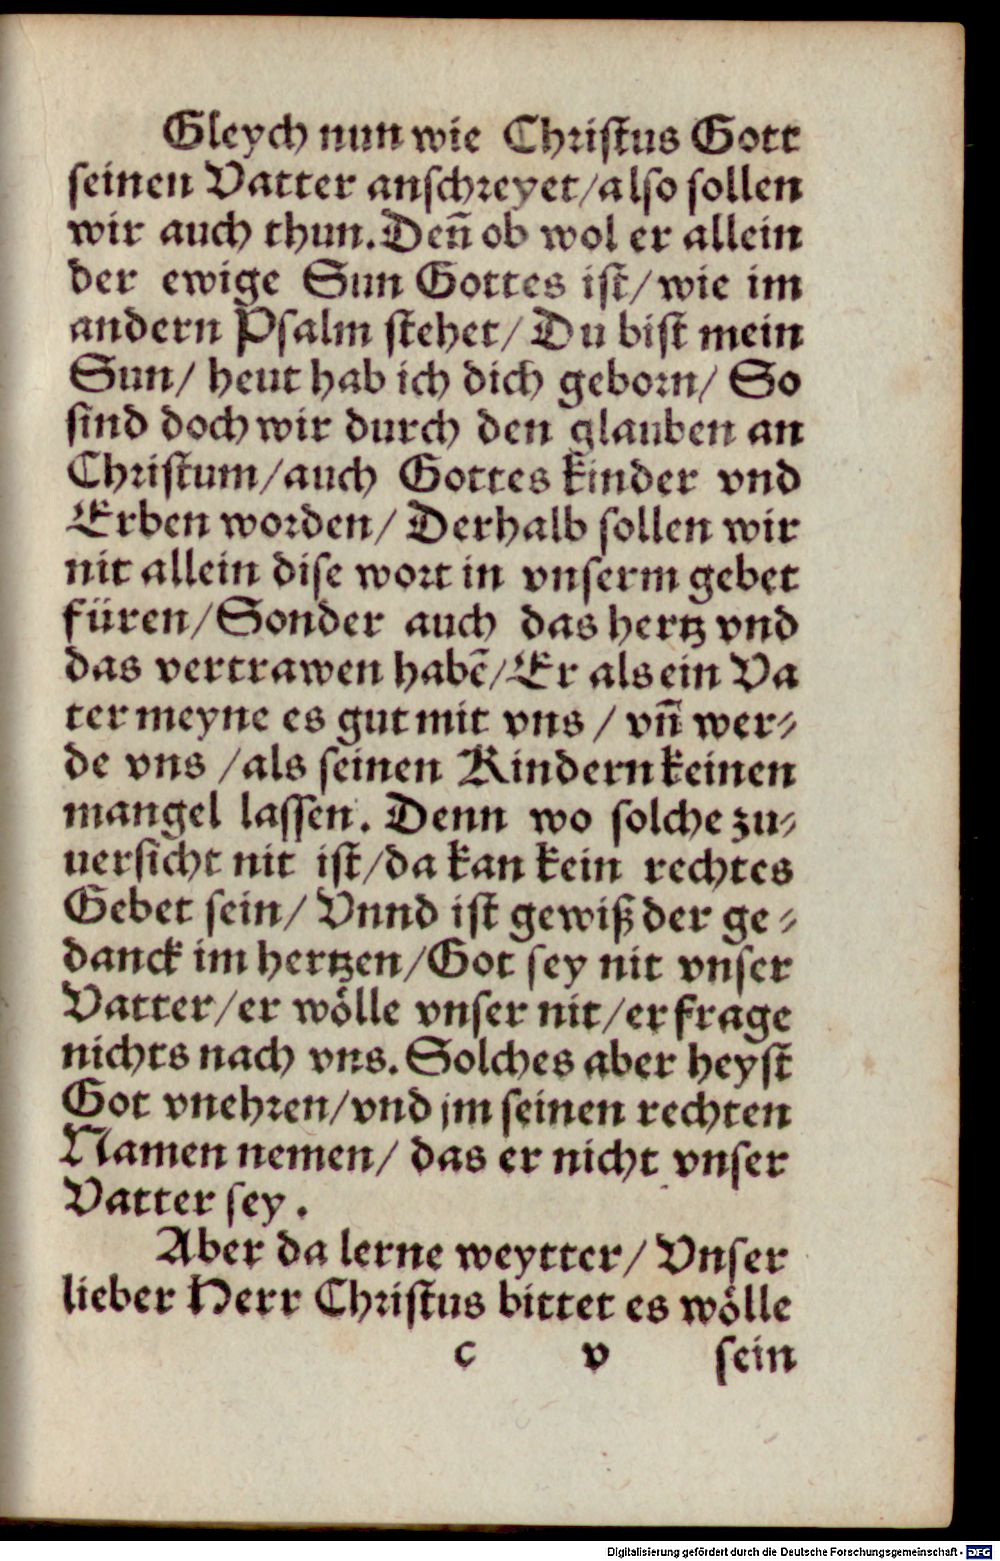 Gleych nun wie Christus Gott
seinen Vatter anschreyet/also sollen
wir auch thun. Deñ ob wol er allein
der ewige Sun Gottes ist/ wie im
andern Psalm stehet/ Du bist mein
Sun/ heut hab ich dich geborn/ So
sind doch wir durch den glauben an
Christum/auch Gottes kinder vnd
Erben worden/ Derhalb sollen wir
nit allein dise wort in vnserm gebet
füren/Sonder auch das hertz vnd
das vertrawen habẽ/Er als ein Va
ter meyne es gut mit vns / vñ wer⸗
de vns /als seinen Kindern keinen
mangel lassen. Denn wo solche zu⸗
uersicht nit ist/da kan kein rechtes
Gebet sein/ Vnnd ist gewiß der ge⸗
danck im hertzen/Got sey nit vnser
Vatter/er woͤlle vnser nit/er frage
nichts nach vns. Solches aber heyst
Got vnehren/vnd jm seinen rechten
Namen nemen/ das er nicht vnser
Vatter sey.
Aber da lerne weytter/ Vnser
lieber Herr Christus bittet es woͤlle
c v sein
Digitalisierung gefördert durch die Deutsche Forschungsgemeinschaft - DFG